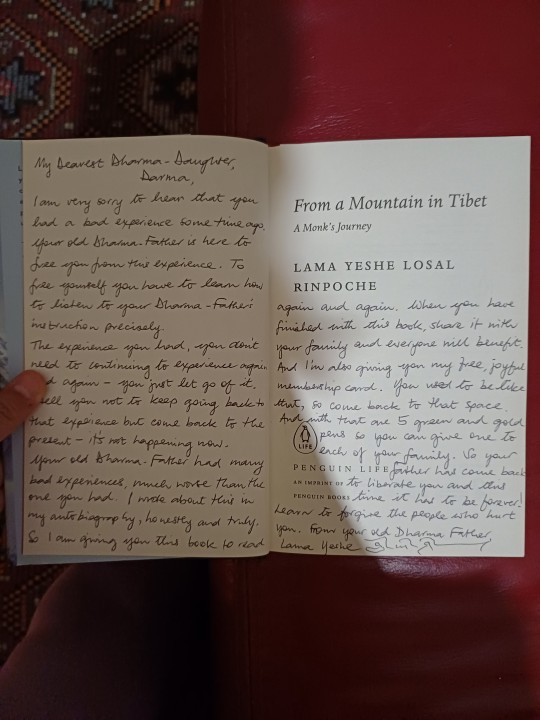 My Dearest Dharma-Daughter,
Darma,
I am very sorry to hear that you
had a bad experience some time ago.
Your old Dharma-Father is here to
free you from this experience. To
free yourself you have to learn how
to listen to your Dharma-Father's
instruction precisely.
The experience you had, you don't
need to continuing to experience again
again - you just let go of it.
tell you not to keep going back to
that experience but come back to the
present - it's not happening now.
Your old Dharma-Father had many
bad experiences, much worse than the
one you had. I wrote about this in
my autobiography, honestly and truly.
So I am giving you this book to read
From a Mountain in Tibet
A Monk's Journey
LAMA YESHE LOSAL
RINPOCHE
again and again. When you have
finished with this book, share it with
your family and everyone will benefit.
And I'm also giving you my free, joyful
membership card. You used to be like
that, so come back to that space.
And with that are 5 green and gold
pens so you can give one to
each of your family. So your
LIFE
PENGUIN LIFE father has come back
AN IMPRINT OF to liberate you and this
PENGUIN BOOKS time it has to be forever!
Learn to forgive the people who hurt
you. From your old Dharma Father,
Lama Yeshe